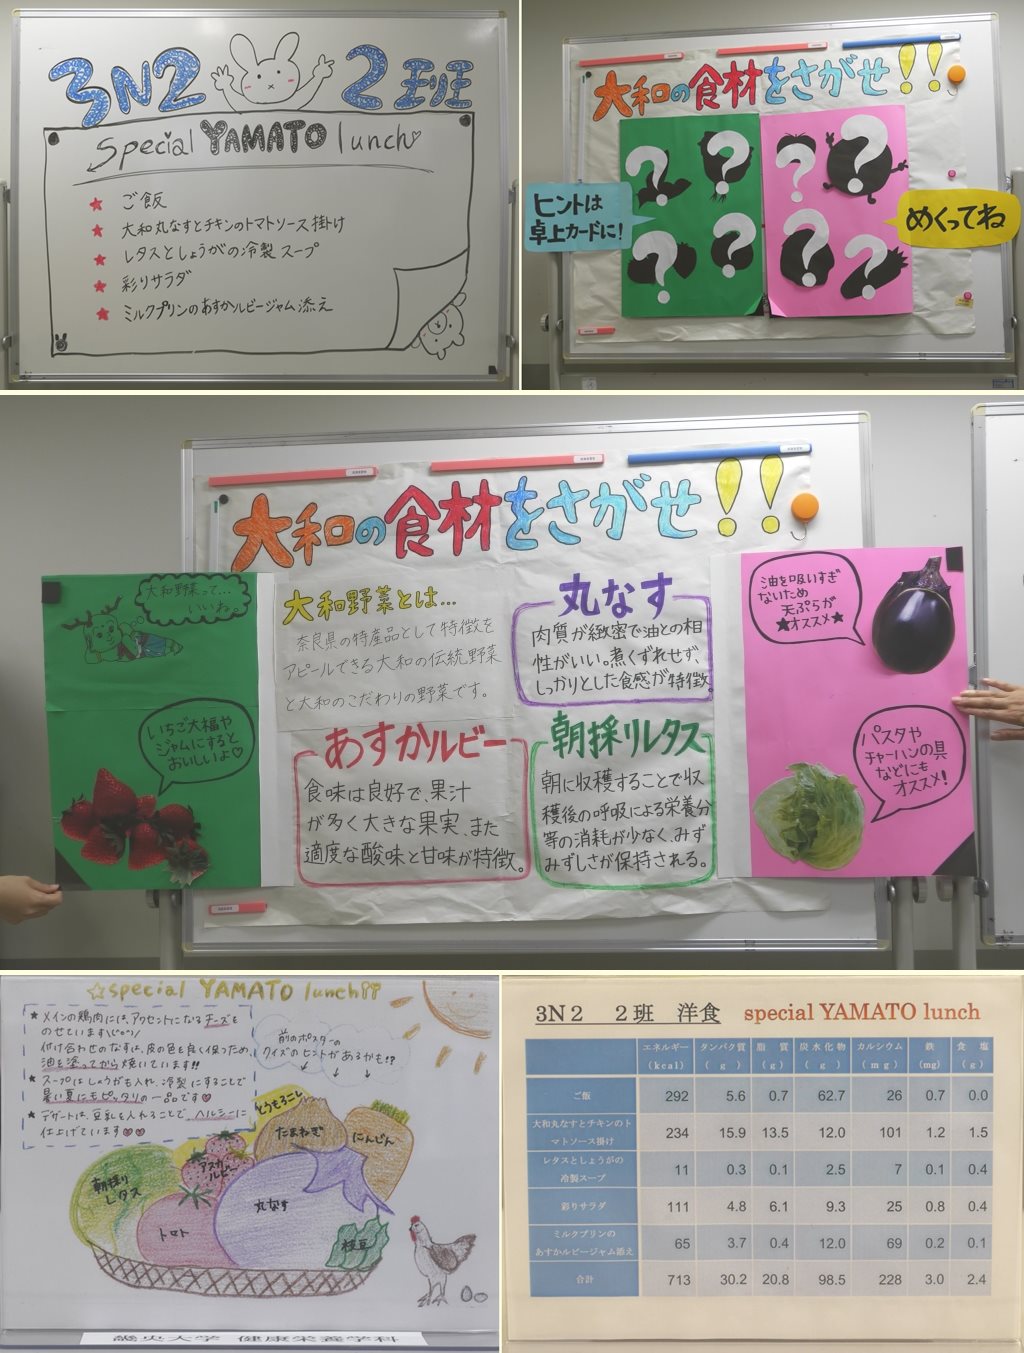 3N2 2班
special YAMATO lunch♡
★ ご飯
★ 大和丸なすとチキンのトマトソース掛け
★ レタスとしょうがの冷製スープ
★ 彩りサラダ
★ ミルクプリンのあすかルビージャム添え
大和の食材をさがせ!!
? ? ? ?
? ? ? ?
ヒントは
卓上カードに!
めくってね
大和の食材をさがせ!!
大和野菜って…
いいね。
いちご大福や
ジャムにすると
おいしいよ♡
大和野菜とは…
奈良県の特産品として特徴を
アピールできる大和の伝統野菜
と大和のこだわりの野菜です。
丸なす
肉質が緻密で油との相
性がいい。煮くずれせず、
しっかりとした食感が特徴。
あすかルビー
食味は良好で、果汁
が多く大きな果実、また
適度な酸味と甘味が特徴。
朝採りレタス
朝に収穫することで収
穫後の呼吸による栄養分
等の消耗が少なく、みず
みずしさが保持される。
油を吸いすぎ
ないため
天ぷらが
★オススメ★
パスタや
チャーハンの具
などにも
オススメ!
☆special YAMATO lunch
★ メインの鶏肉には、アクセントになるチーズを
のせています\(^o^)/
付け合わせのなすは、皮の色を良く保つため、
油を塗ってから焼いています!!
★ スープはしょうがも入れ、冷製にすることで
暑い夏にもピッタリの一品です♡
★ デザートは、豆乳を入れることで、ヘルシーに
仕上げています♡♡
前のポスターの
クイズのヒントがあるかも!?
↓ ↓ ↓
とうもろこし
たまねぎ
にんじん
朝採り
レタス
アスカ
ルビー
トマト
丸なす
枝豆
畿央大学 健康栄養学科
3N2 2班 洋食 special YAMATO lunch
エネルギー(kcal) タンパク質(g) 脂質(g) 炭水化物(g) カルシウム(mg) 鉄(mg) 食塩(g)
ご飯 292 5.6 0.7 62.7 26 0.7 0.0
大和丸なすとチキンのトマトソース掛け 234 15.9 13.5 12.0 101 1.2 1.5
レタスとしょうがの冷製スープ 11 0.3 0.1 2.5 7 0.1 0.4
彩りサラダ 111 4.8 6.1 9.3 25 0.8 0.4
ミルクプリンのあすかルビージャム添え 65 3.7 0.4 12.0 69 0.2 0.1
合計 713 30.2 20.8 98.5 228 3.0 2.4